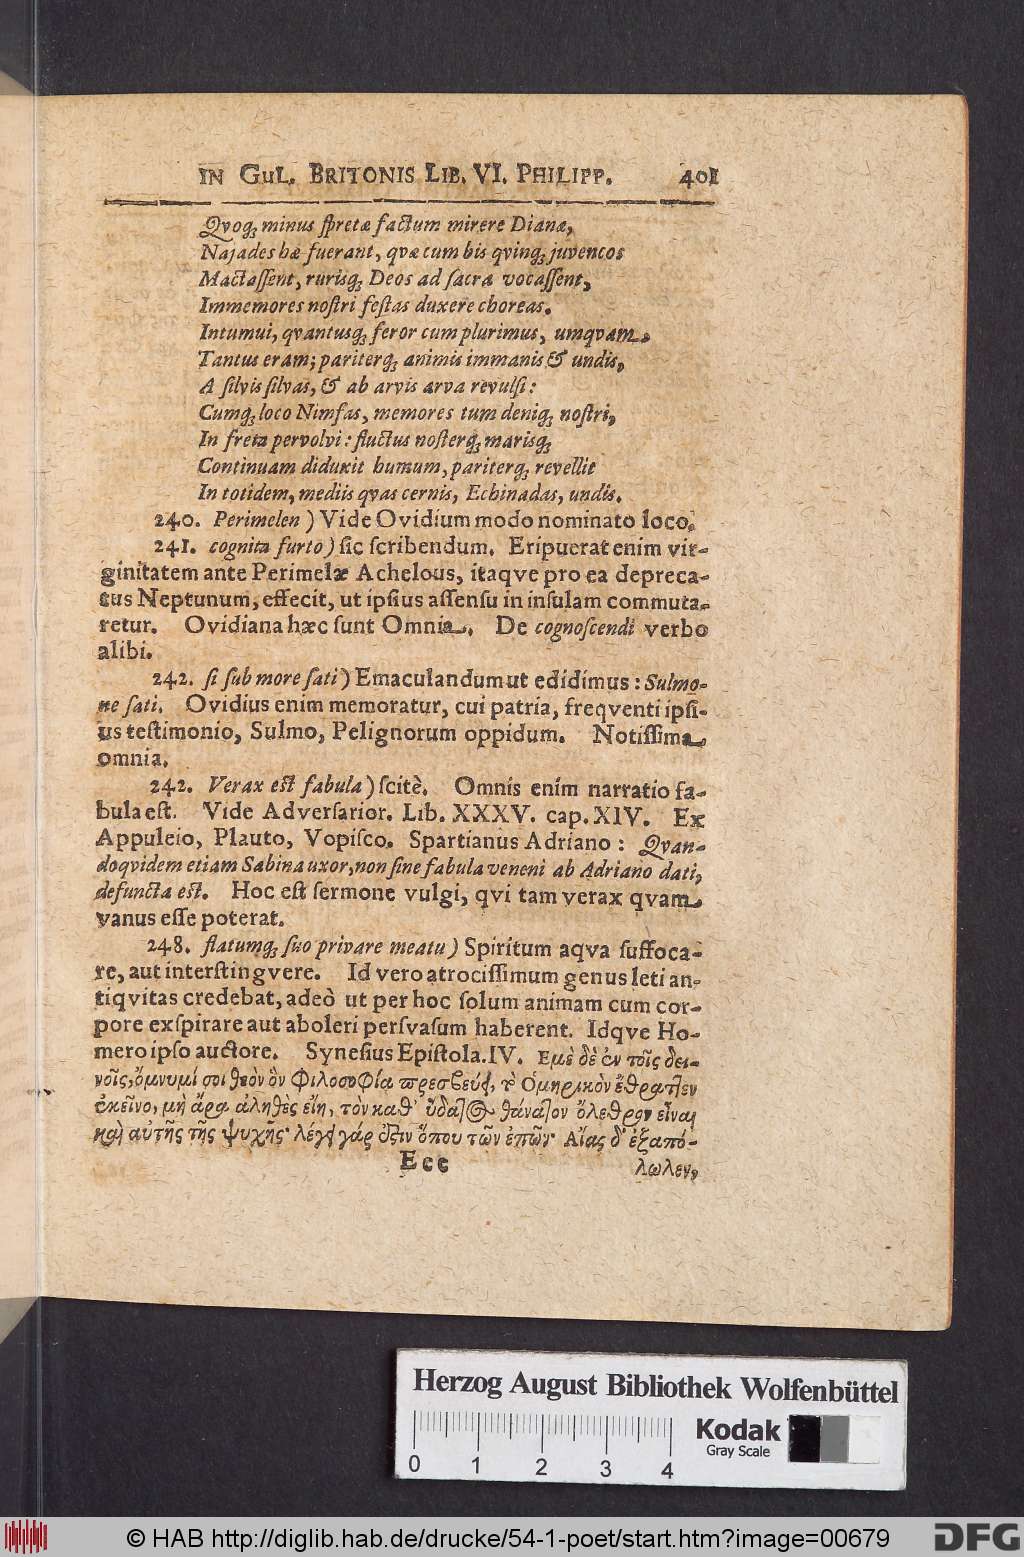 IN GuL. BRITONIS LIB. VI. PHILIPP. 401
Qvoq; minus spretæ factum mirere Dianæ,
Najades hæ fuerant, qvæ cum bis qvinq; juvencos
Mactassent, rurisq; Deos ad sacra vocassent,
Immemores nostri festas duxere choreas.
Intumui, qvantusq; feror cum plurimus, umqvam,
Tantus eram; pariterq; animis immanis & undis,
A silvis silvas, & ab arvis arva revulsi:
Cumq; loco Nimfas, memores tum deniq; nostri,
In freta pervolvi: fluctus nosterq; marisq;
Continuam diduxit humum, pariterq; revellit
In totidem, mediis qvas cernis, Echinadas, undis.
240. Perimelen) Vide Ovidium modo nominato loco.
241. cognita furto) sic scribendum. Eripuerat enim vir-
ginitatem ante Perimelæ Achelous, itaqve pro ea depreca-
tus Neptunum, effecit, ut ipsius assensu in insulam commuta-
retur. Ovidiana hæc sunt Omnia. De cognoscendi verbo
alibi.
242. si sub more sati) Emaculandum ut edidimus: Sulmo-
ne sati. Ovidius enim memoratur, cui patria, freqventi ipsi-
us testimonio, Sulmo, Pelignorum oppidum. Notissima
omnia.
242. Verax est fabula) scitè. Omnis enim narratio fa-
bula est. Vide Adversarior. Lib. XXXV. cap. XIV. Ex
Appuleio, Plauto, Vopisco. Spartianus Adriano: Qvan-
doqvidem etiam Sabina uxor, non sine fabula veneni ab Adriano dati,
defuncta est. Hoc est sermone vulgi, qvi tam verax qvam
vanus esse poterat.
248. flatumq; suo privare meatu) Spiritum aqva suffoca-
re, aut interstingvere. Id vero atrocissimum genus leti an-
tiqvitas credebat, adeò ut per hoc solum animam cum cor-
pore exspirare aut aboleri persvasum haberent. Idqve Ho-
mero ipso auctore. Synesius Epistola. IV. Εμὲ δὲ ἐν τοῖς δει-
νοῖς, ὄμνυμί σοι θεὸν ὃν Φιλοσοφία πρεσβεύει, τὸ Ὁμηρικὸν ἔθραττεν
ἐκεῖνο, μὴ ἄρα ἀληθὲς εἴη, τὸν καθ' ὕδατος θάνατον ὄλεθρον εἶναι
καὶ αὐτῆς τῆς ψυχῆς· λέγει γάρ ὅστιν ὅπου τῶν ἐπῶν· Αἴας δ' ἐξαπό-
Eee λωλεν,
Herzog August Bibliothek Wolfenbüttel
Kodak
Gray Scale
0 1 2 3 4
© HAB http://diglib.hab.de/drucke/54-1-poet/start.htm?image=00679
DFG